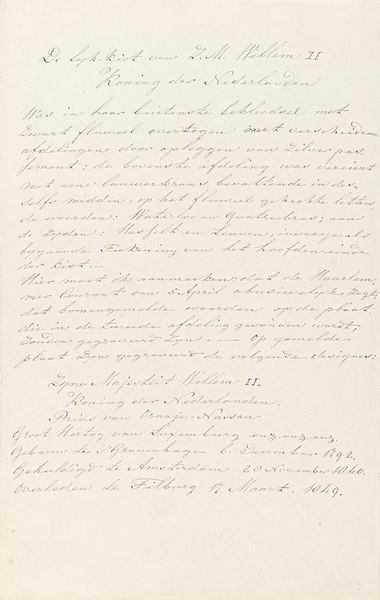 De Lijk-kist van Z.M. Willem II
Koning der Nederlanden
Was in haar buitenste bekleedsel met
Zwart fluweel overtogen met verscheidene
afdelingen door opleggen van Zilver pas
sement: de bovenste afdeling was verciert
met een lauwerkrans bevattende in des
selfs midden, op het fluweel gehechte letters
de woorden: Waterloo en Quatrebras, aan
de Zyden: Hasselt en Leuven, invoege als
bygaande Teekening van het hoofden einde
der kist.
Hier moet ik aanmerken dat de Haarlem
mer Courant van 5 April abusivelyk Zegt,
dat bovengemelde woorden op de plaat
die in de tweede afdeling gevonden wordt,
Zouden gegraveerd Zyn. — Op gemelde
plaat Zyn gegraveerd de volgende
Zyne Majesteit Willem II.
Koning der Nederlanden.
Prins van Oranje-Nassau
Groot Hertog van Luxemburg enz. enz. enz.
Geboren te S'Gravenhage 6. December 1792.
Gehuldigd te Amsterdam 28 November 1840.
Overleden te Tilburg 17 Maart. 1849.